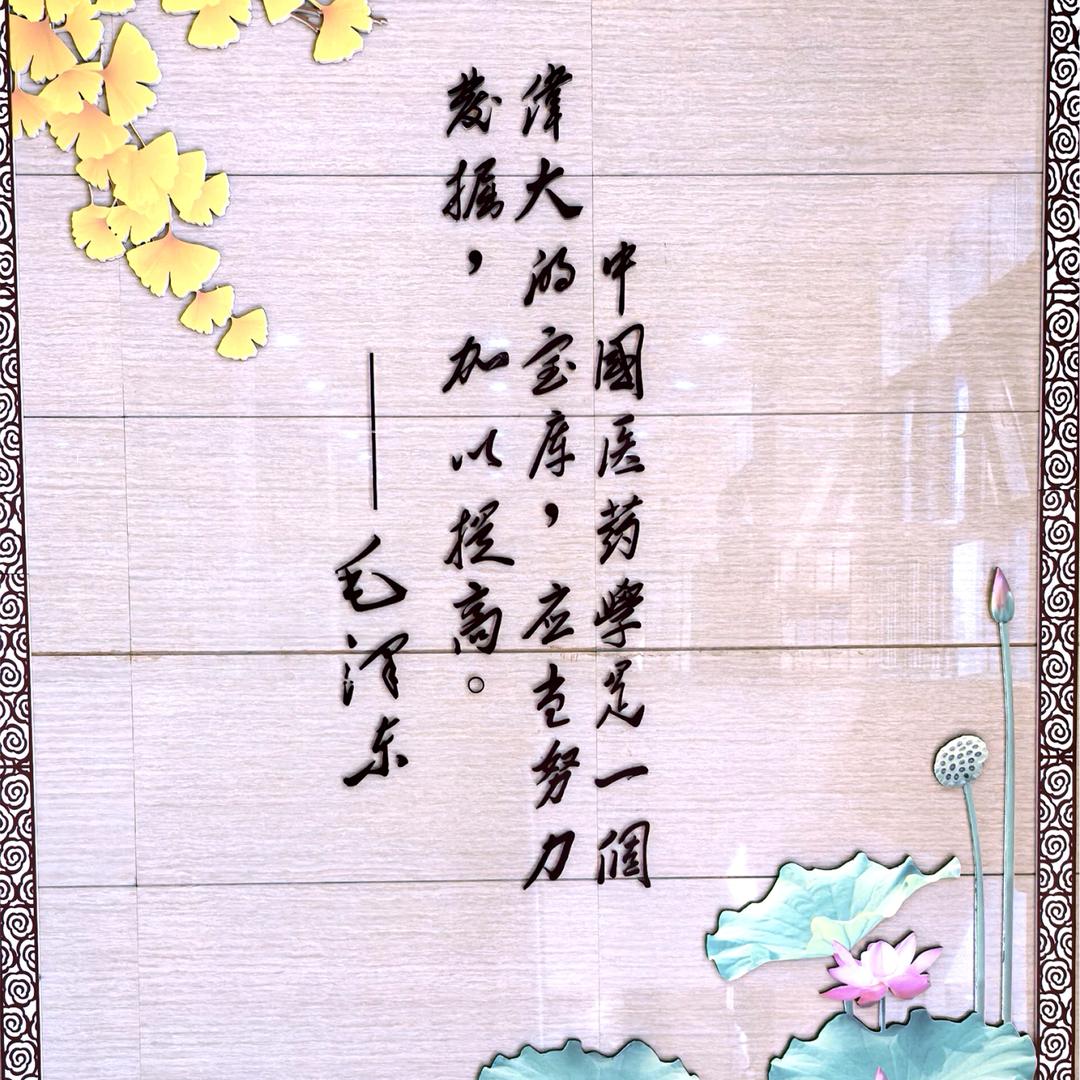 中國医药學是一個
偉大的宝库，应当努力
发掘，加以提高。
——毛泽东